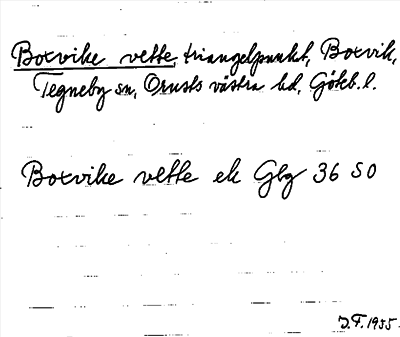 Botvike vette, triangelpunkt, Botvik,
Tegneby sn, Orusts västra hd, Göteb. l.
Botvike vette ek Gbg 36 SO
J.F. 1955.